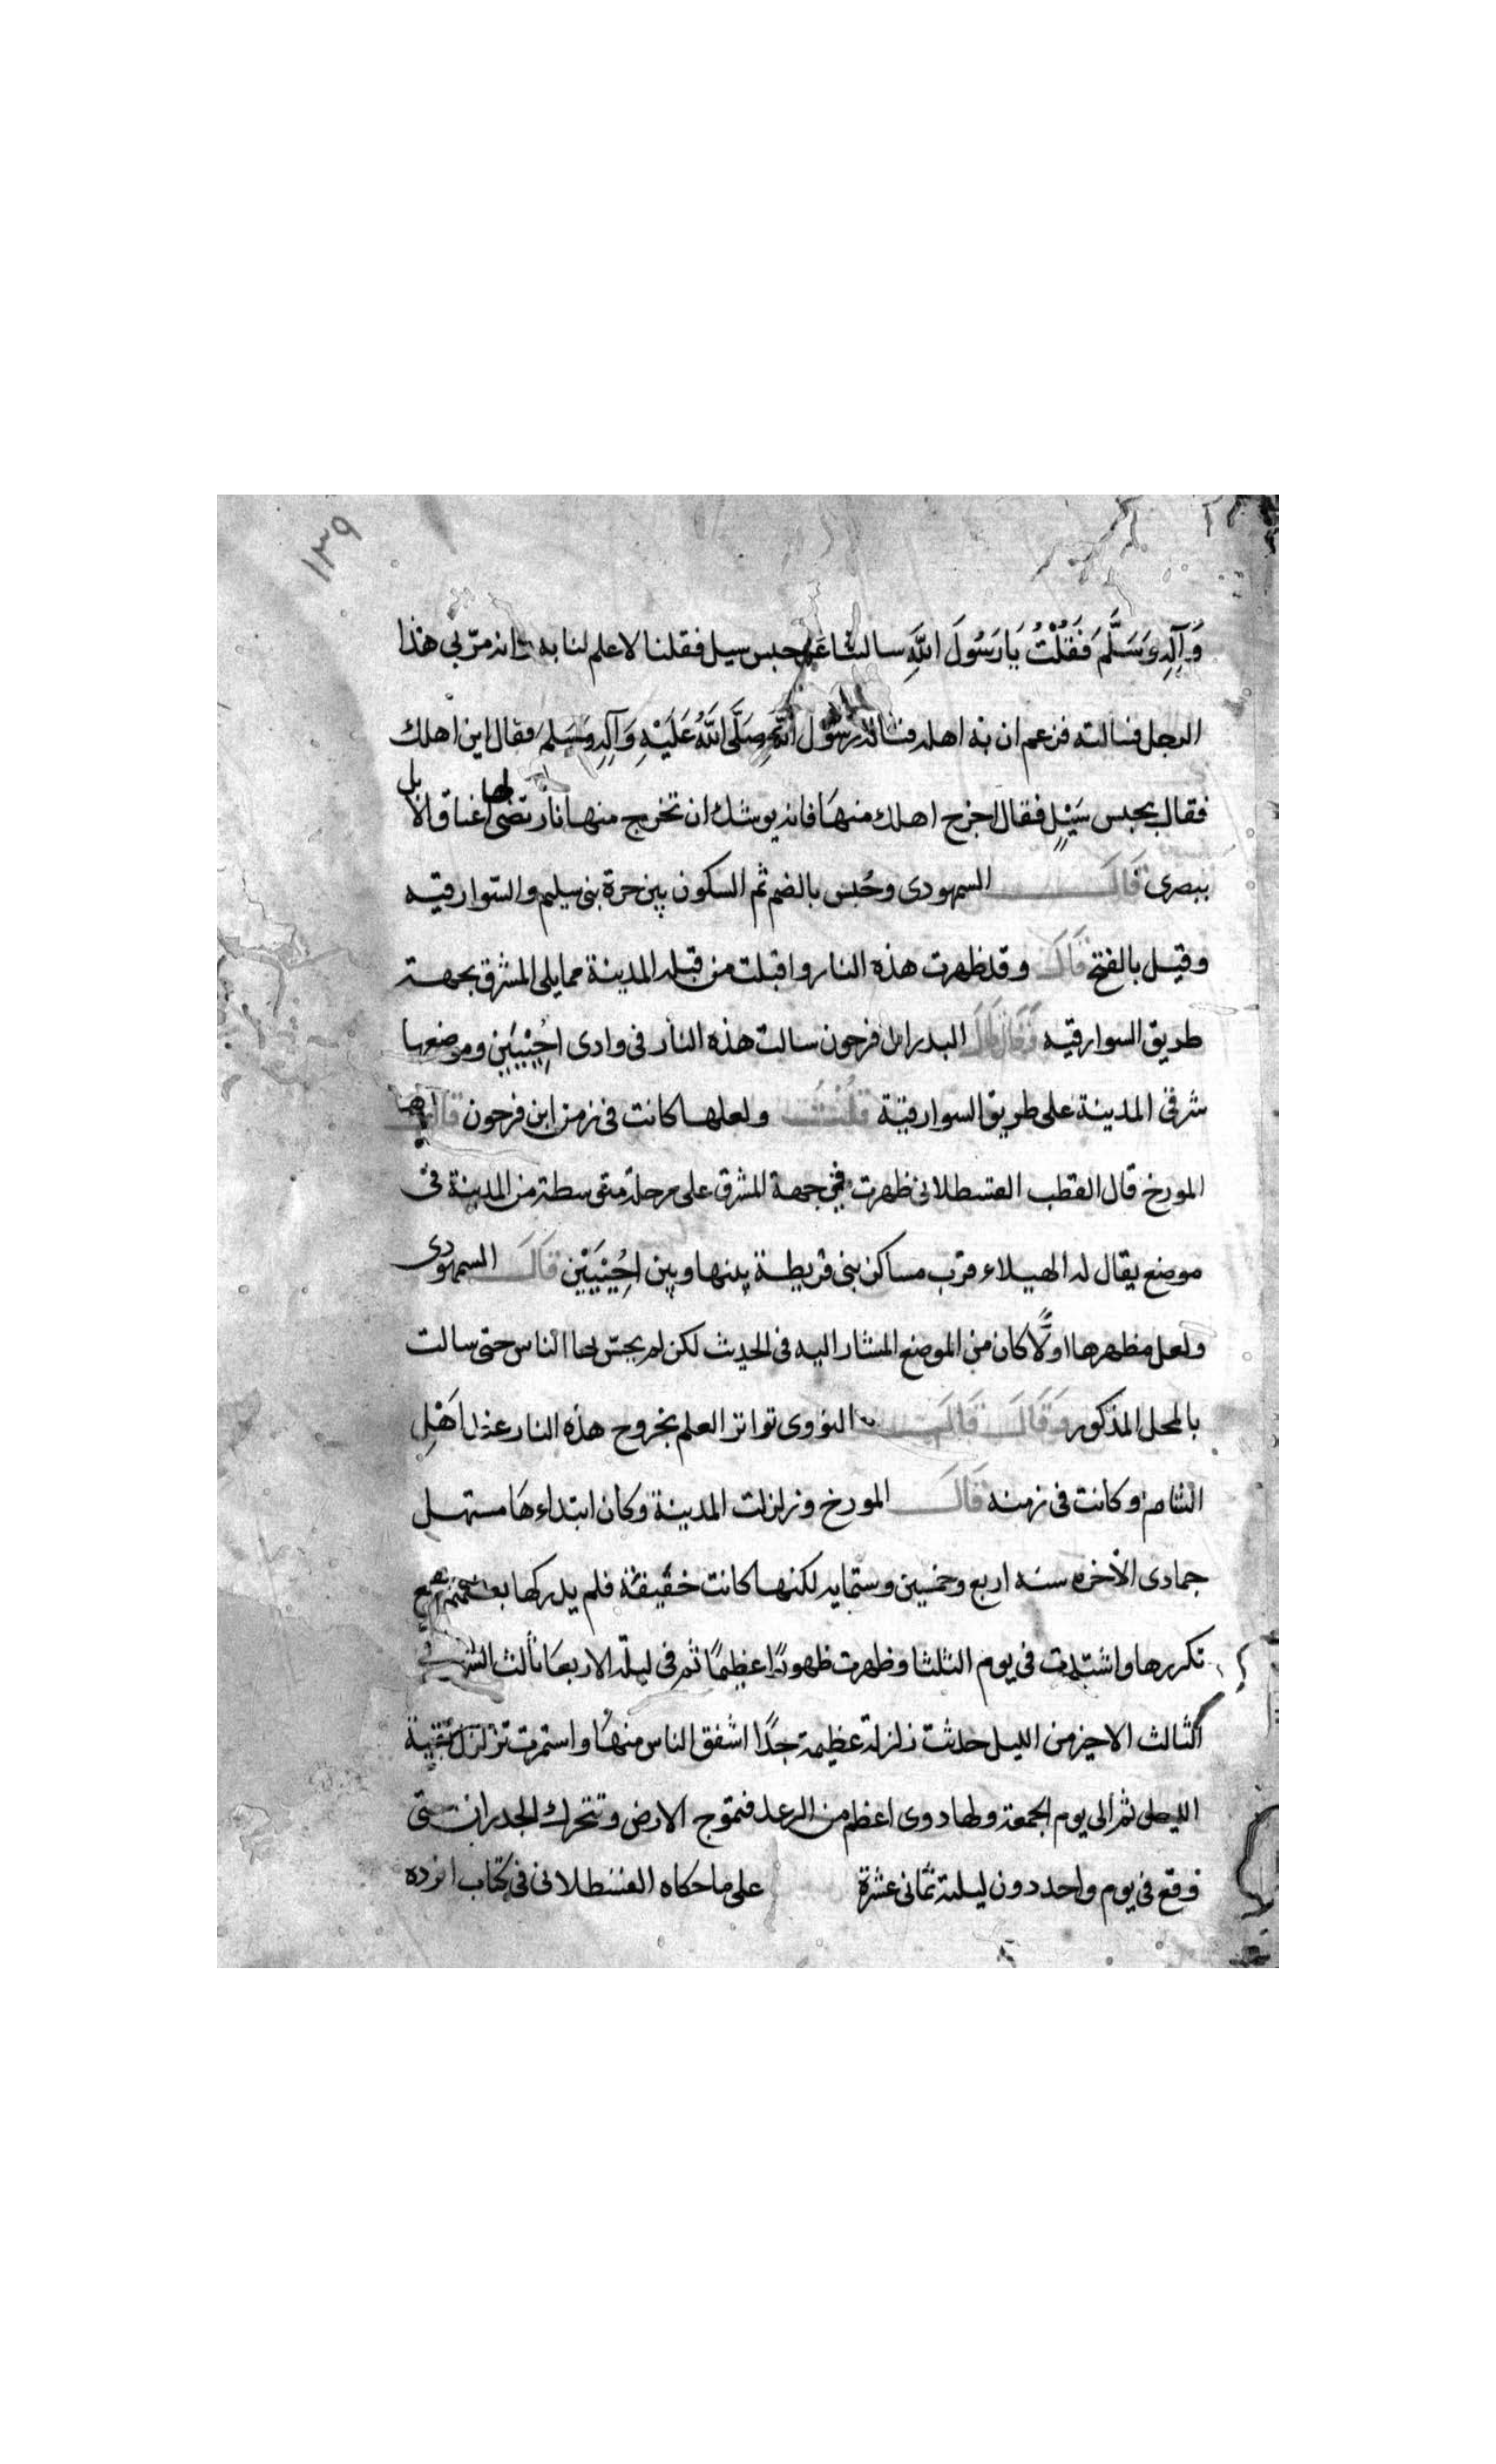 ١٣٩
وَآلِهِ وَسَلَّمَ فَقُلْتُ يَا رَسُولَ اللَّهِ سالتنا عن حبس سيل فقلنا لا علم لنا به انه مرّ بي هذا
الرجل فسالته فزعم ان به اهله فسالته رسُول اللَّهِ صَلَّى اللَّهُ عَلَيْهِ وَآلِهِ وَسَلم فقال اين اهلك
فقال بحبس سَيْلٍ فقال اخرج اهلك منهَا فانه يوشك ان تخرج منها نار تضى لها اعناق الابل
ببصرى قَالَ السمهودى وحُبس بالضم ثم السكون بين حرة بنى سليم والسّوارقيه
وقيل بالفتح قَالَ وقد ظهرت هذه النار واقبلت من قبله المدينة مما يلى المشرق بجهة
طريق السوارقيه فَقَالَ البدر ابن فرحون سالت هذه النار فى وادى احُيْلَيَيْن وموضعها
شرقى المدينة على طريق السوارقيّة قُلْتُ ولعلها كانت فى زمن ابن فرحون قال
المورخ قال القطب القسطلانى ظهرت فى جهة المشرق على مرحلة متوسطة من المدينة فى
موضع يقال له الهيلاء قرب مساكن بنى قريظة بينها وبين احُيْلَيَيْن قَالَ السمهودى
ولعل مظهرها اولًا كان من الموضع المشار اليه فى الحديث لكن لم يحتس لها الناس حتى سالت
بالمحل المذكور وَقَالَ النووى تواتر العلم بخروج هذه النار عند اَهْلِ
الشام وكانت فى زمنه قَالَ المورخ وزلزلت المدينة وكان ابتداءهَا مستهل
جمادى الاخره سنه اربع وخمسين وستمايه لكنها كانت خفيفة فلم يدركها بعضهم مع
تكررها واشتدت فى يوم الثلثا وظهرت ظهورًا عظيمًا ثم فى ليلة الاربعَا ثالث الشهر فى
الثالث الاخير من الليل حدثت زلزلة عظيمة جدًا اشفق الناس منهَا واستمرت تزلزل بقية
الليل ثم الى يوم الجمعة ولها دوى اعظم من الرعد فتموج الارض وتتحرك الجدران حتى
وقع فى يوم واحد دون ليلته ثمانى عشرة على ما حكاه القسطلانى فى كتاب افرده